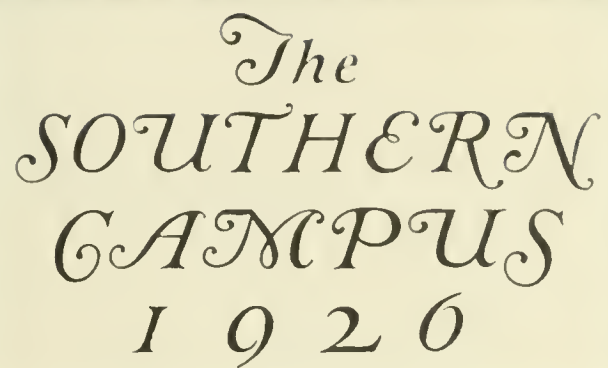 The
SOUTHERN
CAMPUS
1926